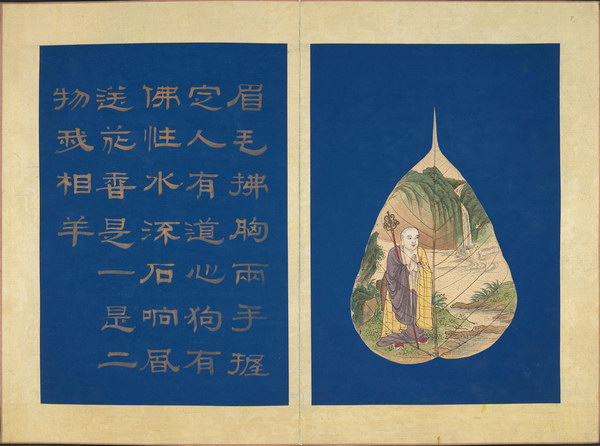 眉毛拂胸兩手握
定人有道心狗有
佛性水流石响風
送花香是一是二
物我相羊